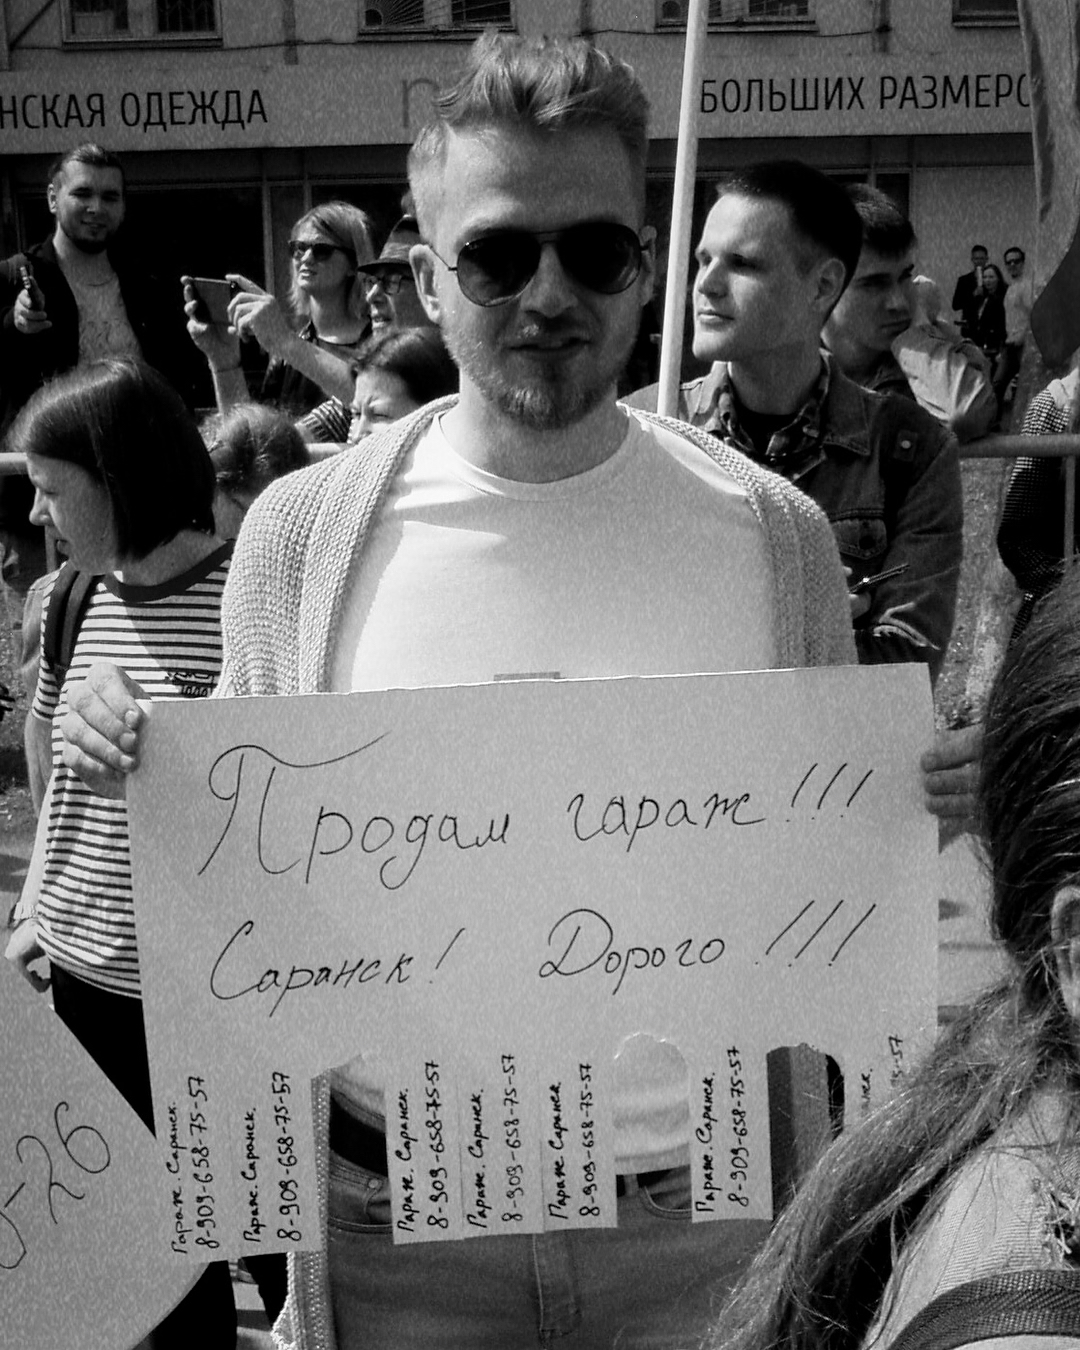 НСКАЯ ОДЕЖДА
БОЛЬШИХ РАЗМЕРО
Продам гараж!!!
Саранск! Дорого!!!
Гараж. Саранск.
8-909-658-75-57
Гараж. Саранск.
8-909-658-75-57
Гараж. Саранск.
8-909-658-75-57
Гараж. Саранск.
8-909-658-75-57
Гараж. Саранск.
8-909-658-75-57
Гараж. Саранск.
8-909-658-75-57
анск.
5-57
-26